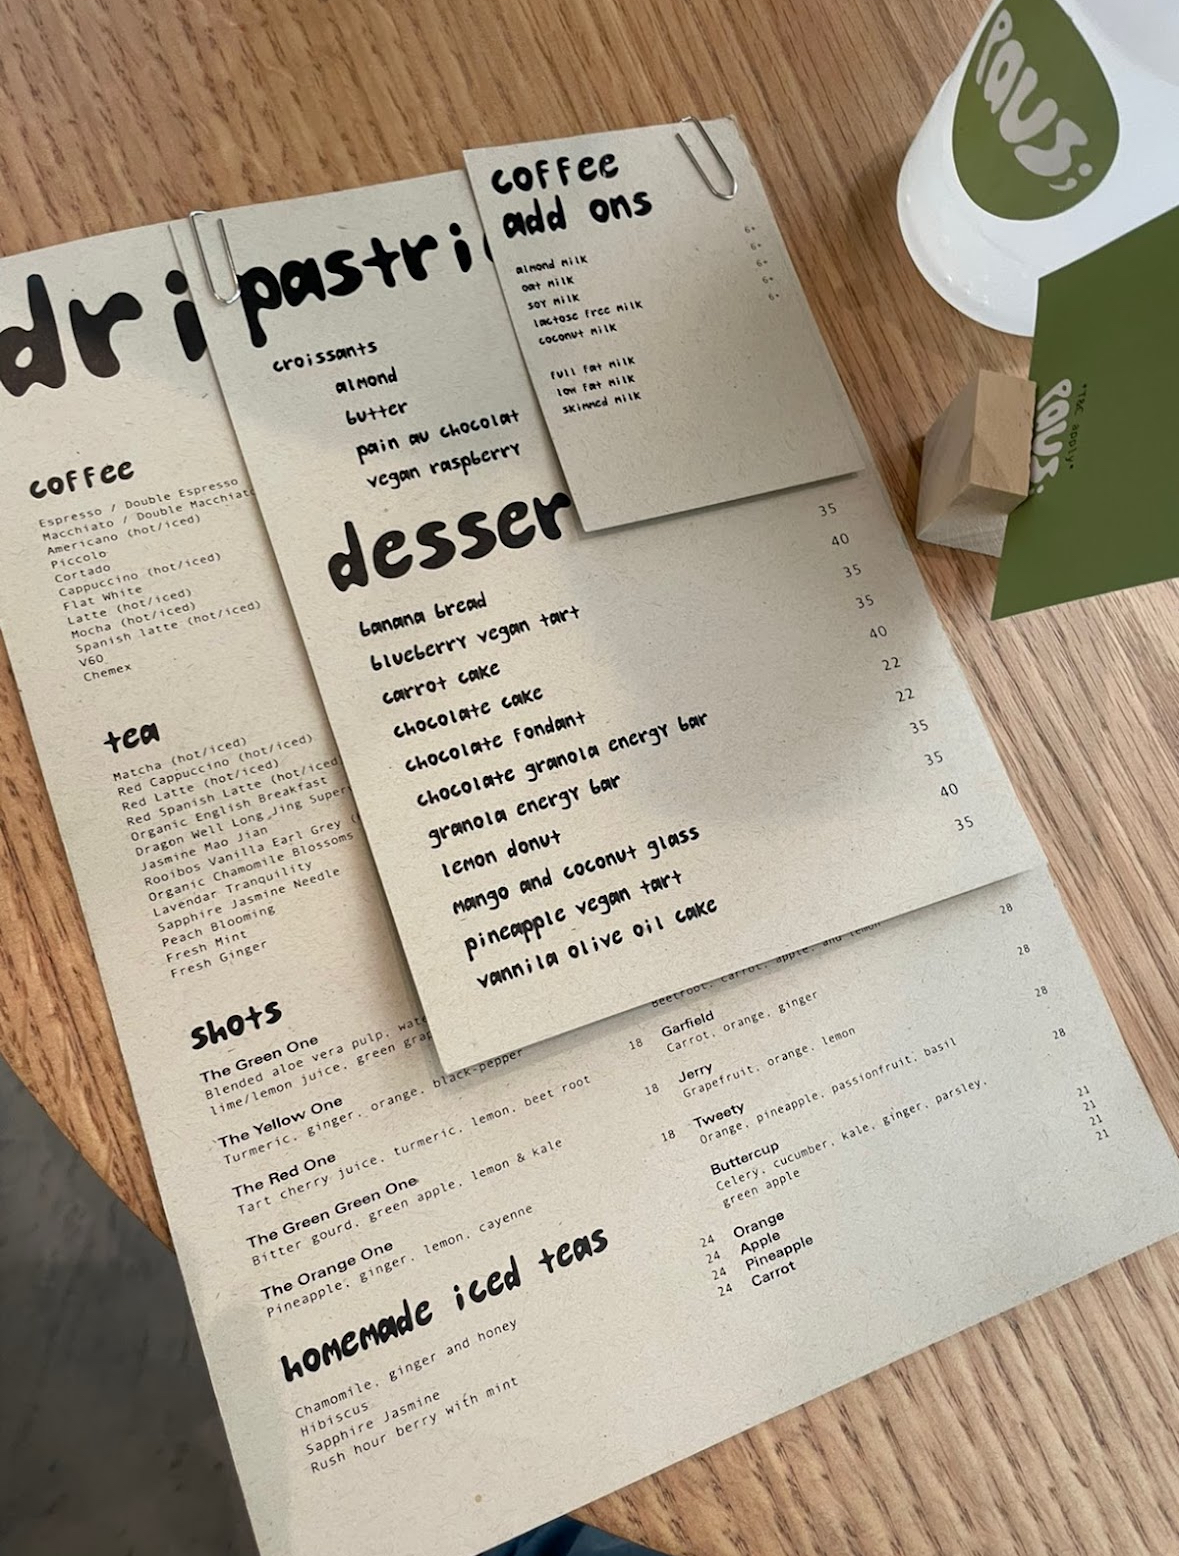 dri
coffee
Espresso / Double Espresso
Macchiato / Double Macchiato
Americano (hot/iced)
Piccolo
Cortado
Cappuccino (hot/iced)
Flat White
Latte (hot/iced)
Mocha (hot/iced)
Spanish latte (hot/iced)
V60
Chemex
tea
Matcha (hot/iced)
Red Cappuccino (hot/iced)
Red Latte (hot/iced)
Red Spanish Latte (hot/iced)
Organic English Breakfast
Dragon Well Long Jing
Jasmine Mao Jian
Rooibos Vanilla Earl Grey
Organic Chamomile Blossoms
Lavendar Tranquility
Sapphire Jasmine Needle
Peach Blooming
Fresh Mint
Fresh Ginger
shots
The Green One
Blended aloe vera pulp,
lime/lemon juice, green
The Yellow One 18
Turmeric, ginger, orange, black-pepper
The Red One 18
Tart cherry juice, turmeric, lemon, beet root
The Green Green One 18
Bitter gourd, green apple, lemon & kale
The Orange One
Pineapple, ginger, lemon, cayenne
homemade iced teas
Chamomile, ginger and honey 24
Hibiscus 24
Sapphire Jasmine 24
Rush hour berry with mint 24
pastri
croissants
almond
butter
pain au chocolat
vegan raspberry
desser
banana bread 35
blueberry vegan tart 40
carrot cake 35
chocolate cake 35
chocolate fondant 40
chocolate granola energy bar 22
granola energy bar 22
lemon donut 35
mango and coconut glass 35
pineapple vegan tart 40
vannila olive oil cake 35
coffee
add ons
almond milk 6+
oat milk 6+
soy milk 6+
lactose free milk 6+
coconut milk 6+
full fat milk
low fat milk
skimmed milk
Beetroot, carrot, apple, and lemon
Garfield 28
Carrot, orange, ginger
Jerry 28
Grapefruit, orange, lemon
Tweety 28
Orange, pineapple, passionfruit, basil
Buttercup 28
Celery, cucumber, kale, ginger, parsley,
green apple
Orange 21
Apple 21
Pineapple 21
Carrot 21
paus;
paus;